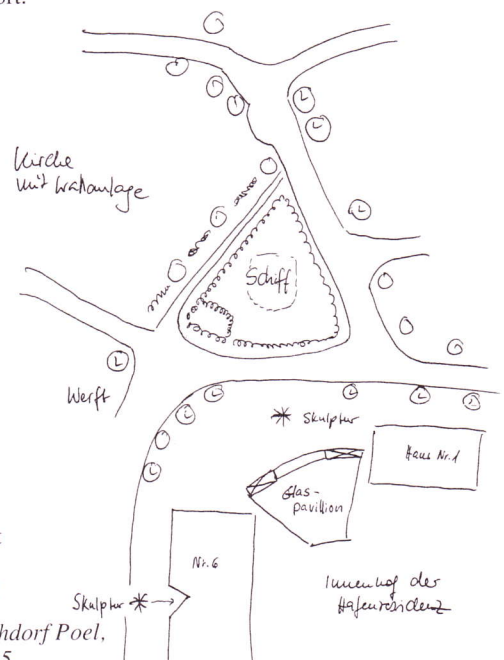 ort.
Kirche
mit Wallanlage
Schiff
L
L
L
L
Werft
L
L
L
L
L
Skulptur
Haus Nr. 1
Glas-
pavillion
Nr. 6
Innenhof der
Hafenresidenz
Skulptur
hdorf Poel,
5